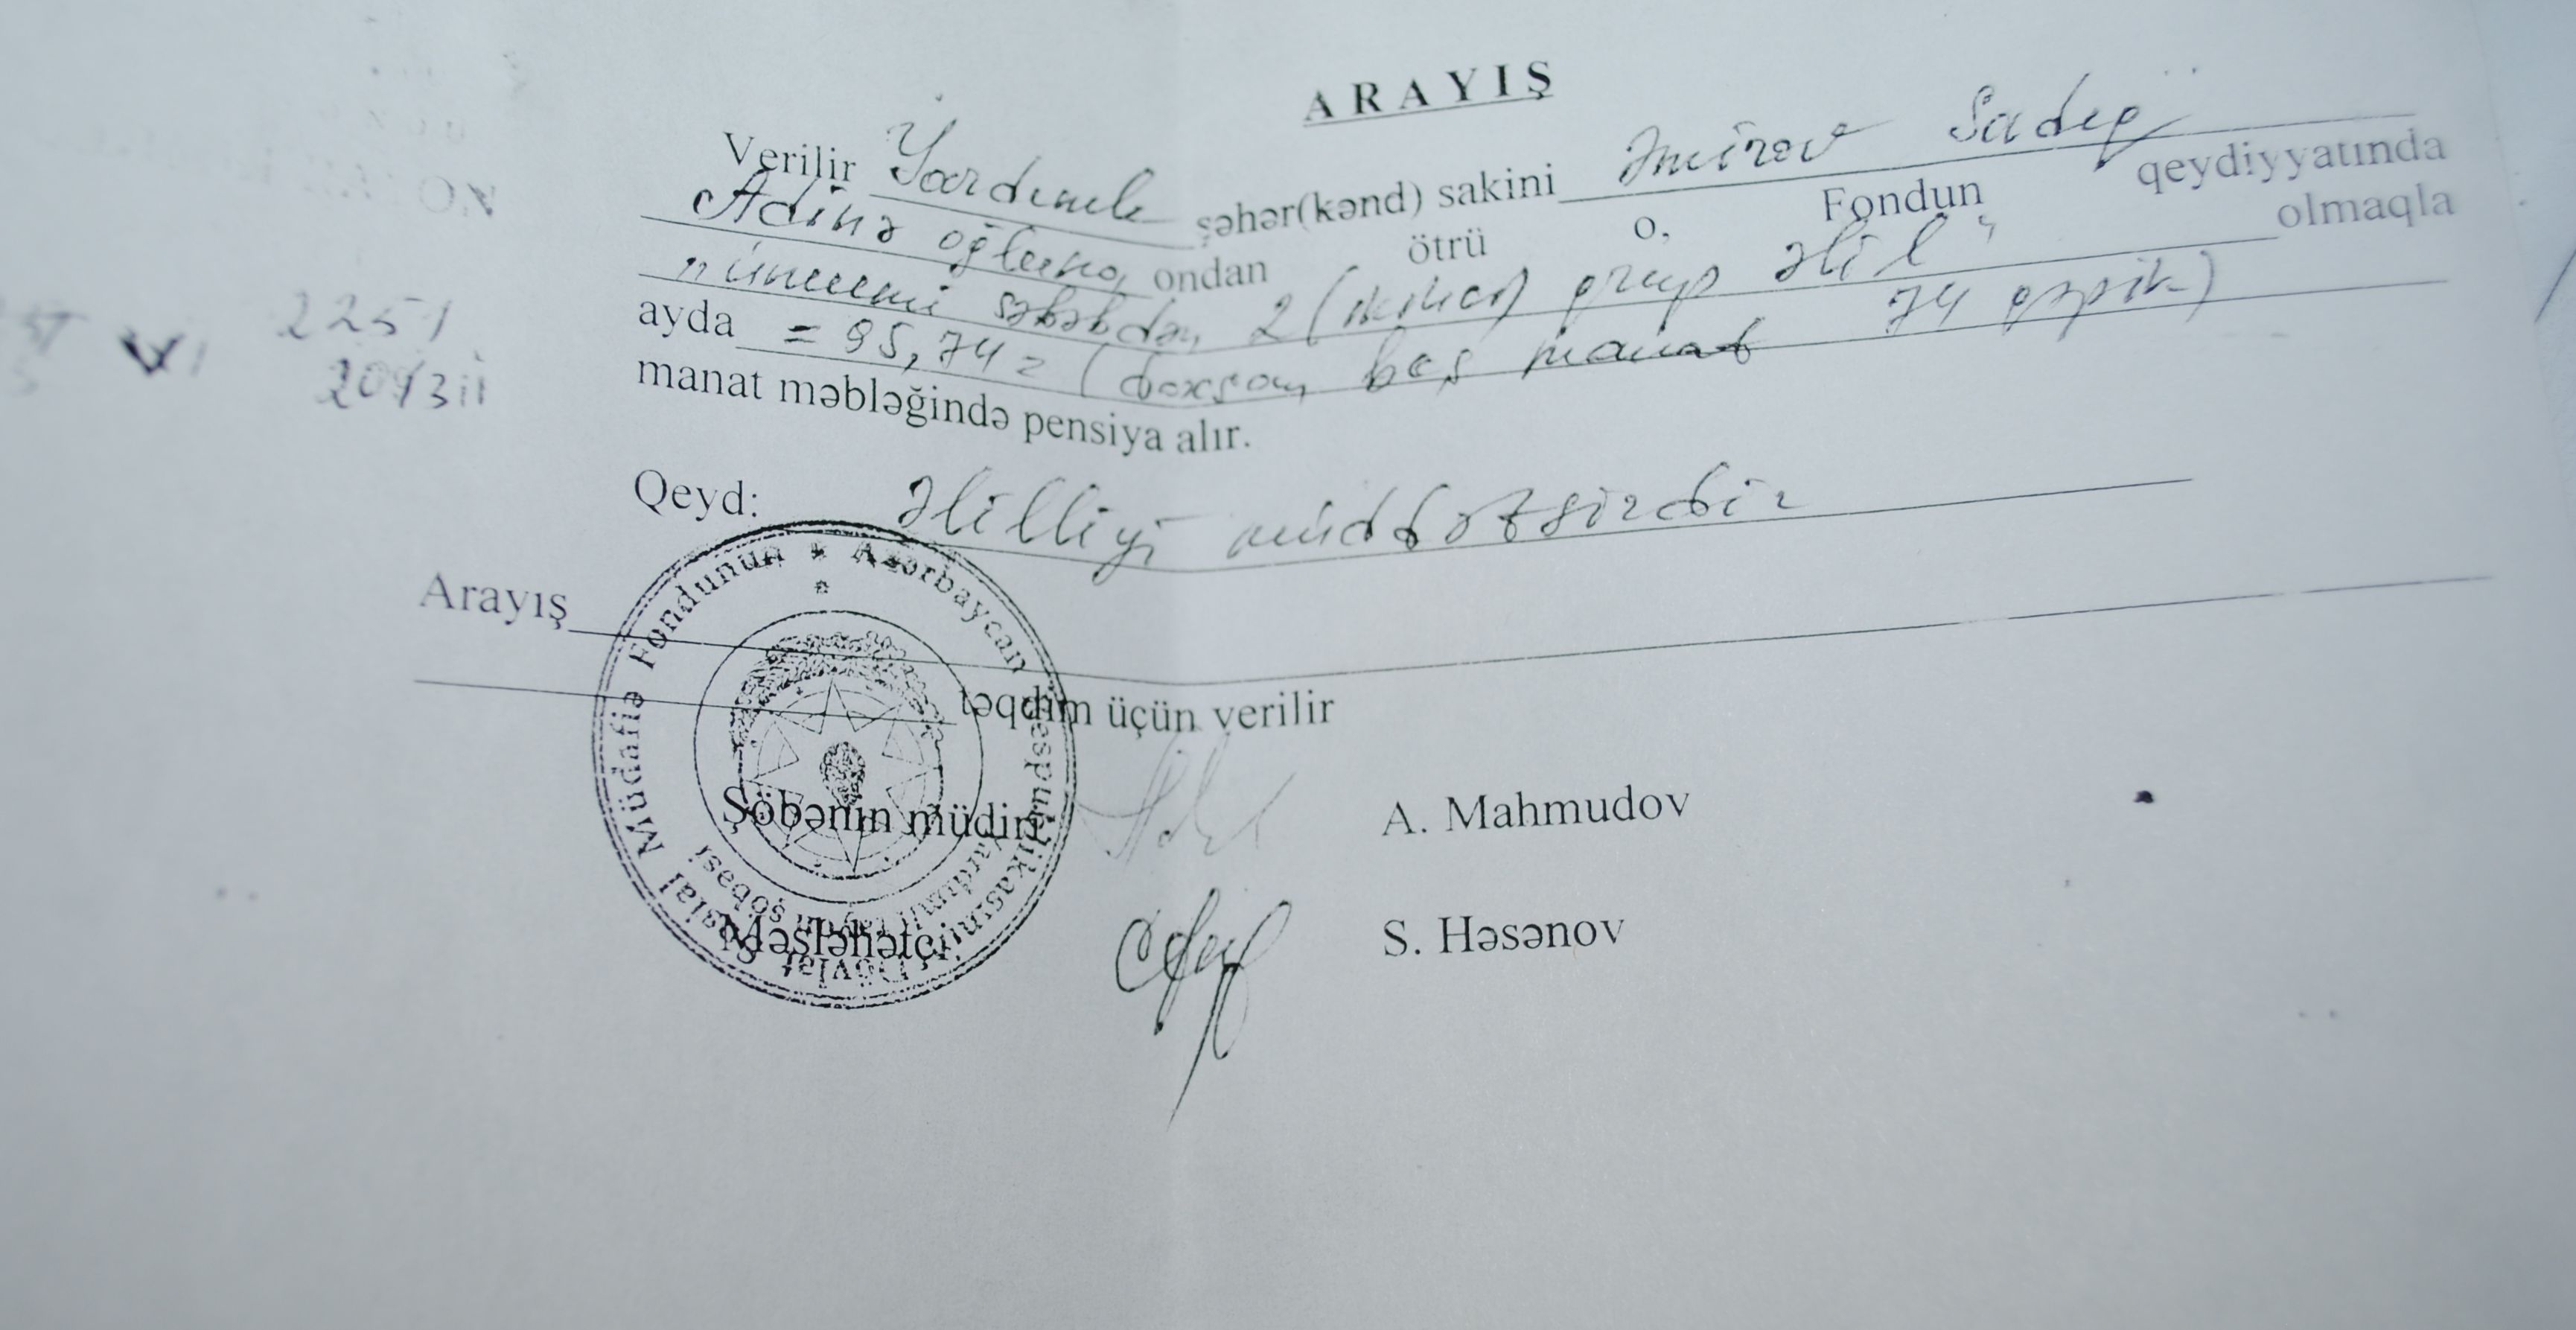 ARAYIŞ
Verilir Yardımlı şəhər(kənd) sakini Əmirov Sadıq
Adınə oğluna, ondan ötrü o, Fondun qeydiyyatında
"ümumi səbəbdən 2 (ikinci) qrup əlil" olmaqla
ayda = 95,74 = (doxsan beş manat 74 qəpik)
manat məbləğində pensiya alır.
2251
Qeyd: Əlilliyi müddətsizdir
Arayış
təqdim üçün verilir
Şöbənin müdiri: A. Mahmudov
Məsləhətçi S. Həsənov
Azərbaycan Respublikasının Dövlət Sosial Müdafiə Fondunun
Yardımlı rayon şöbəsi